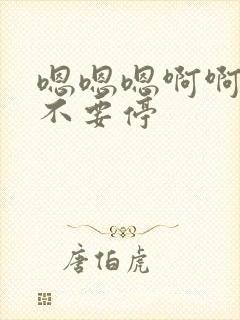 嗯嗯嗯啊啊
不要停
唐伯虎